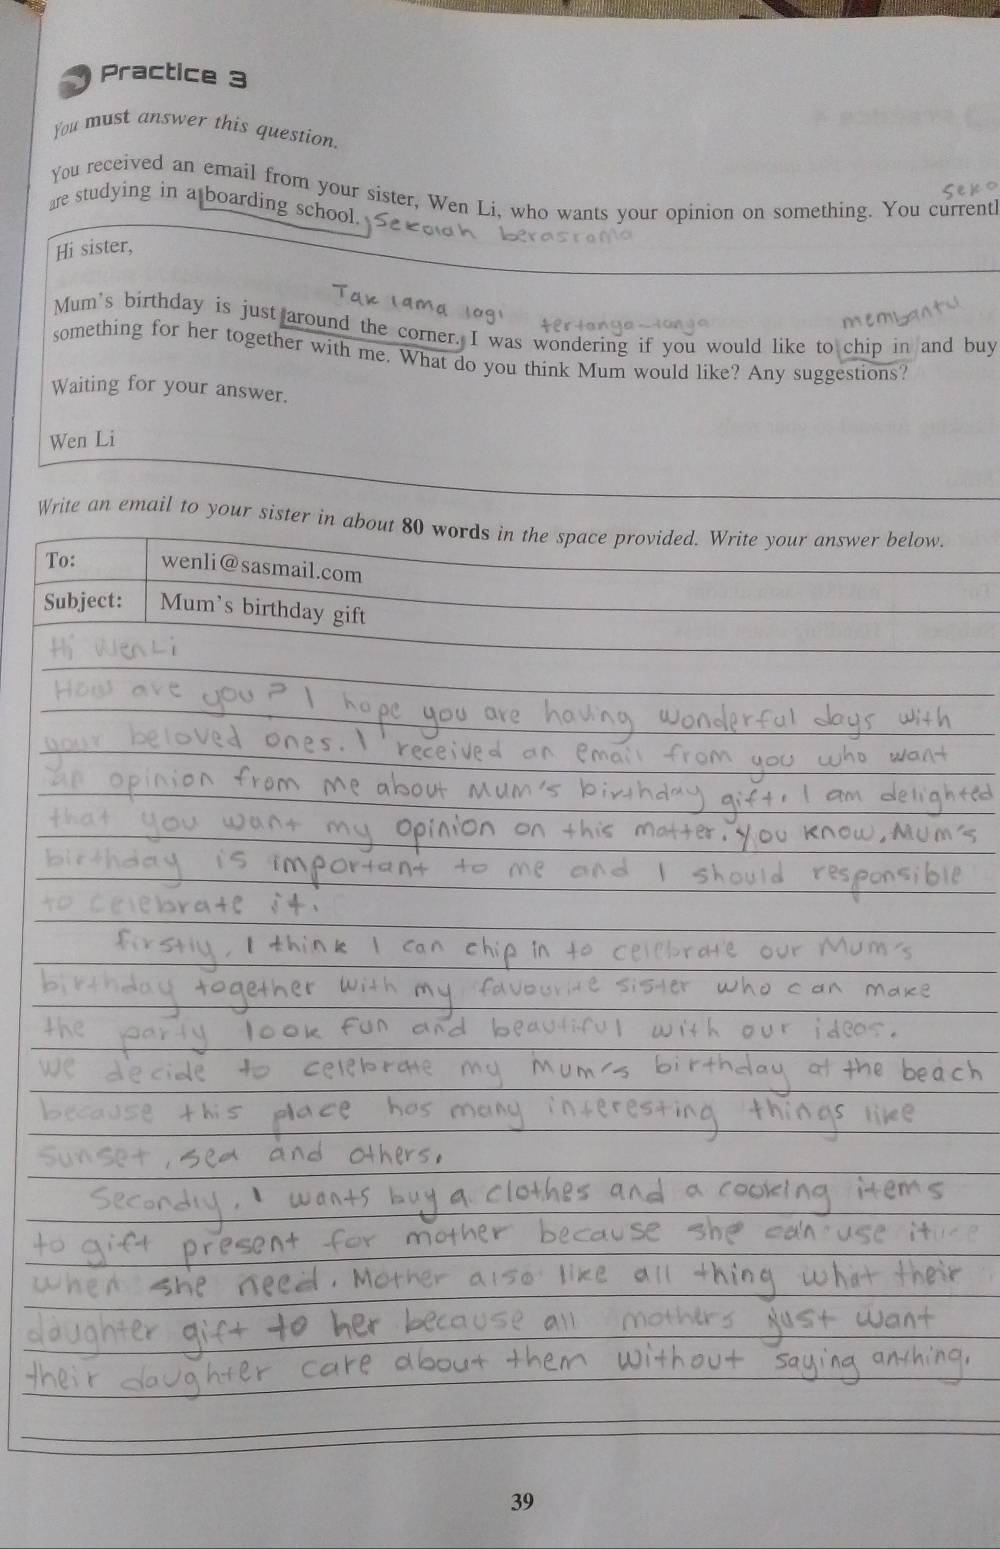 Practice 3
You must answer this question.
You received an email from your sister, Wen Li, who wants your opinion on something. You currentl
are studying in a boarding school.
seko
sekolah berasrama
Hi sister,
Tak lama lagi
tertanya-tanya
membantu
Mum's birthday is just around the corner. I was wondering if you would like to chip in and buy
something for her together with me. What do you think Mum would like? Any suggestions?
Waiting for your answer.
Wen Li
Write an email to your sister in about 80 words in the space provided. Write your answer below.
To: wenli@sasmail.com
Subject: Mum's birthday gift
Hi Wen Li
How are you? I hope you are having wonderful days with
your beloved ones. I received an email from you who want
an opinion from me about Mum's birthday gift. I am delighted
that you want my opinion on this matter. You know, Mum's
birthday is important to me and I should responsible
to celebrate it.
firstly, I think I can chip in to celebrate our Mum's
birthday together with my favourite sister who can make
the party look fun and beautiful with our ideas.
we decide to celebrate my mum's birthday at the beach
because this place has many interesting things like
sunset, sea and others.
Secondly, I wants buy a clothes and a cooking items
to gift present for mother because she can use it
when she need. Mother also like all thing what their
daughter gift to her because all mothers just want
their daughter care about them without saying anthing.
39